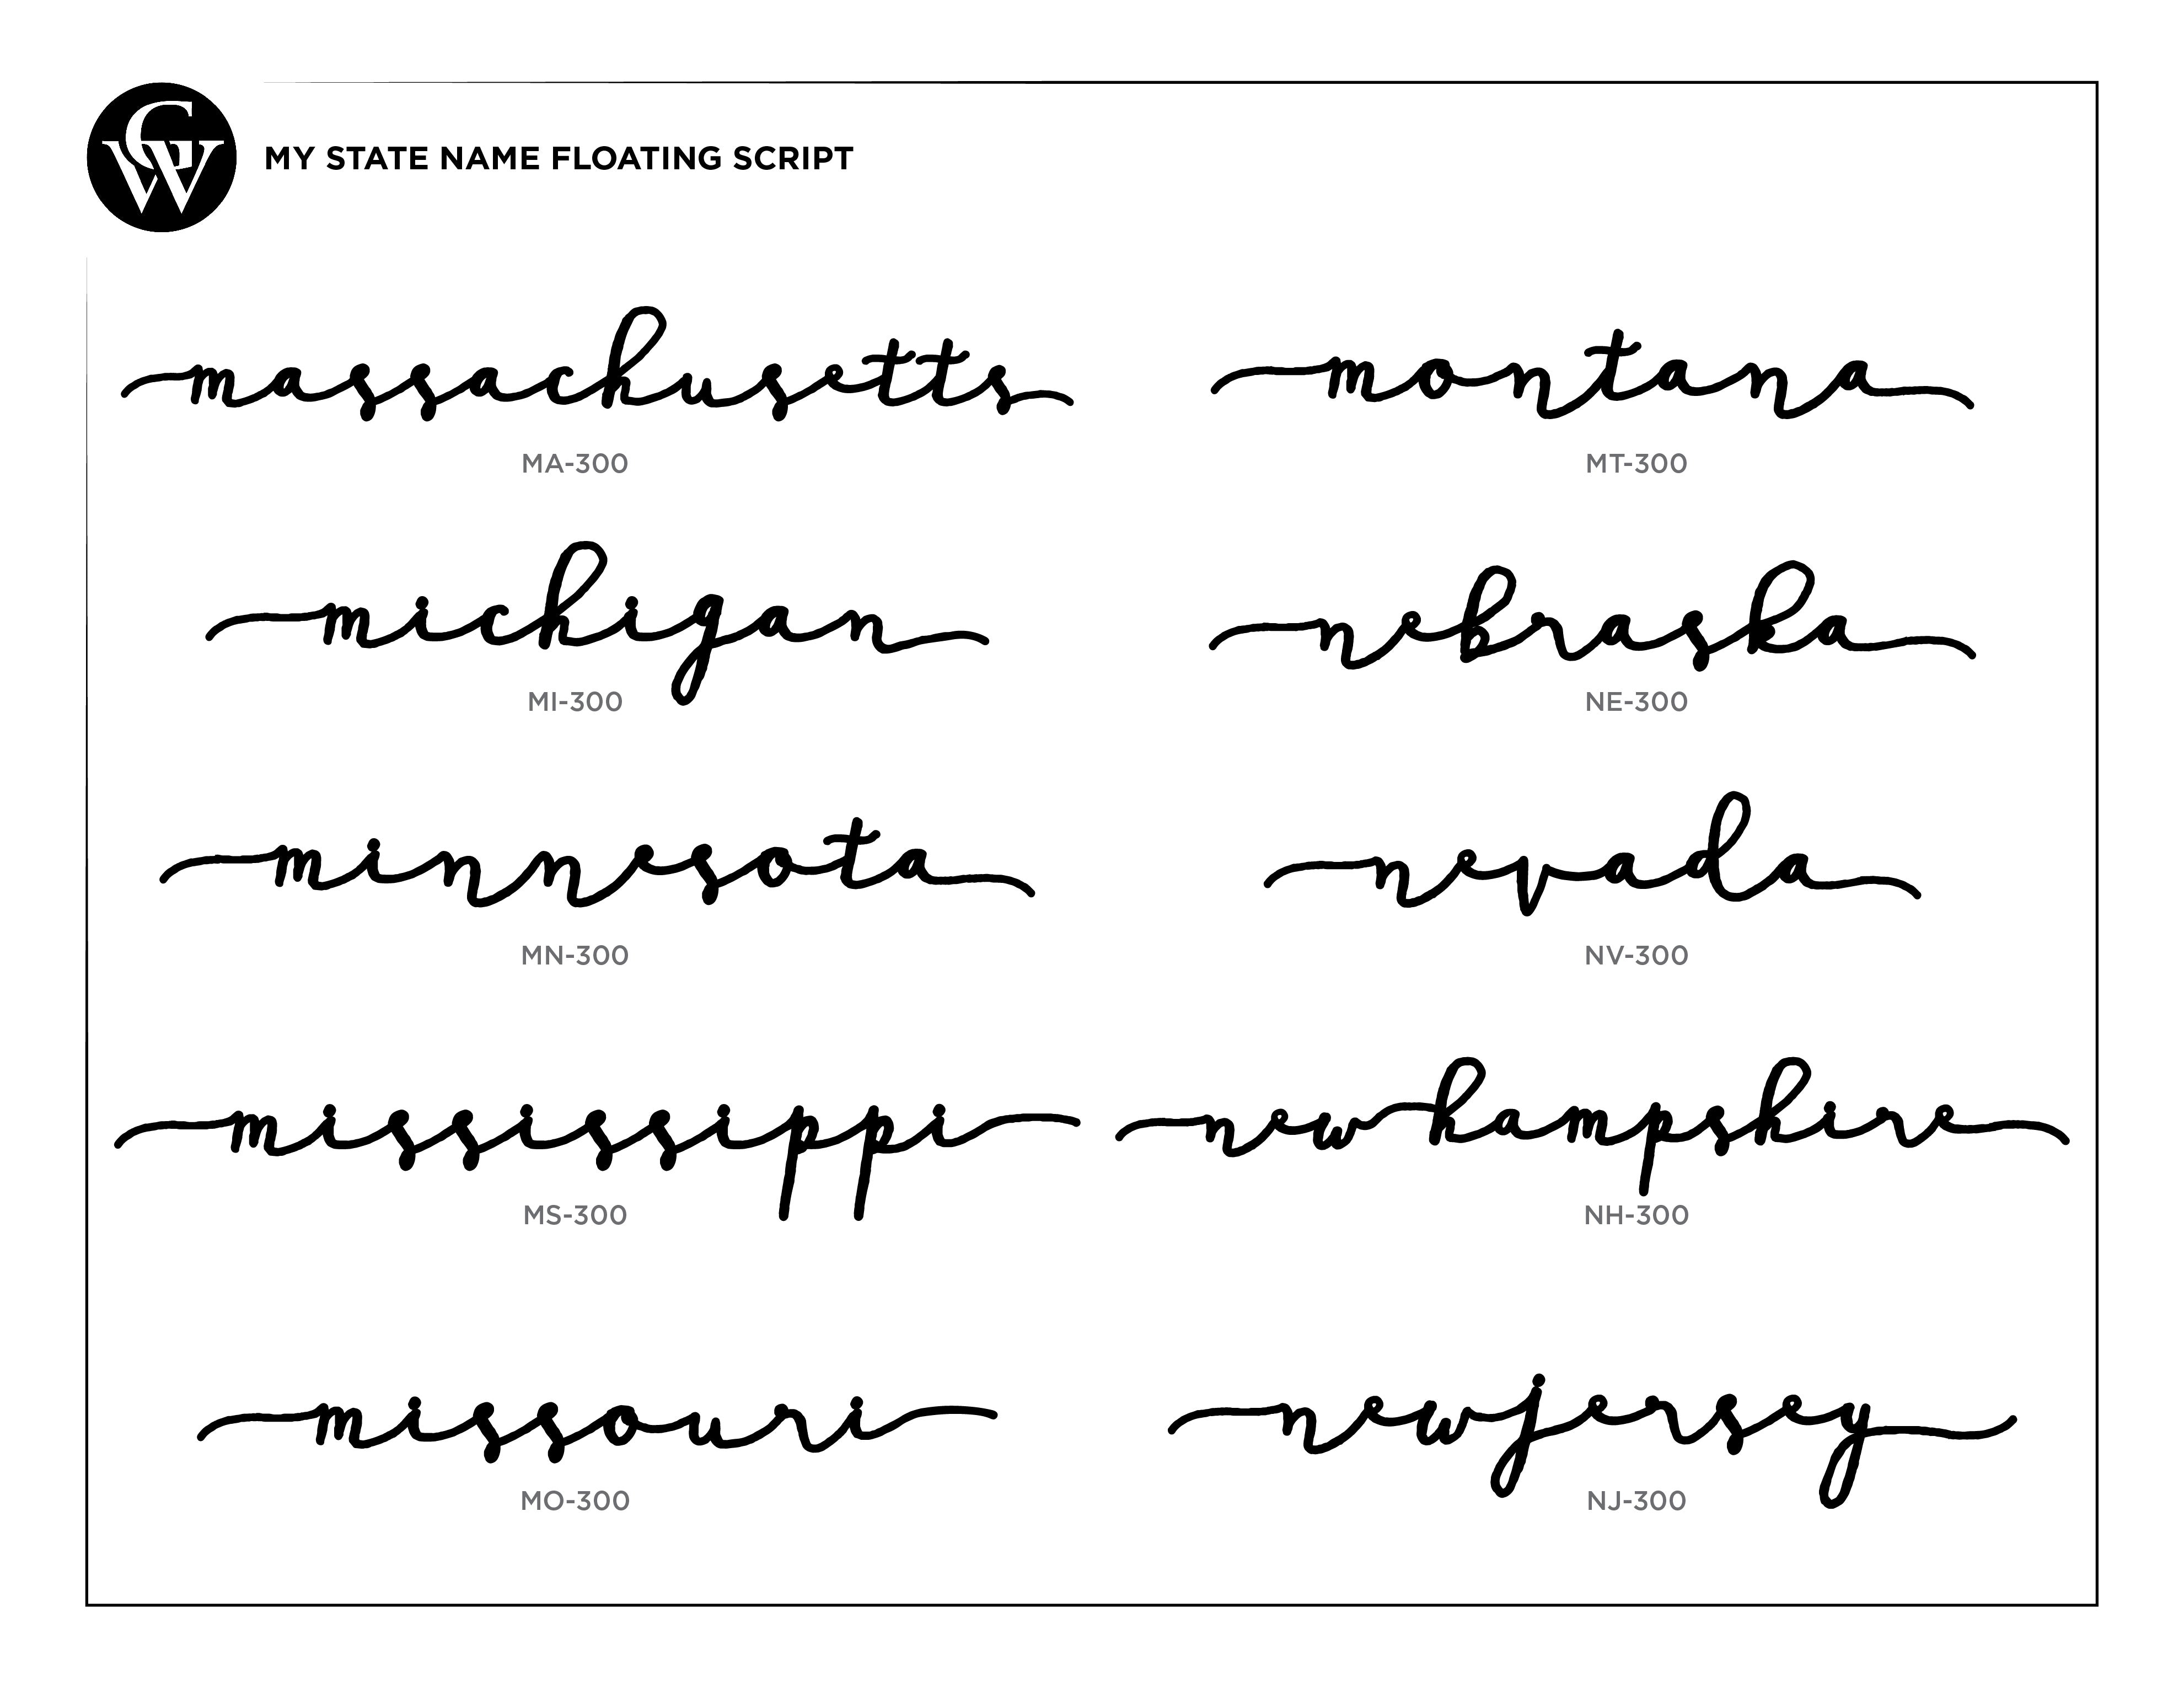 MY STATE NAME FLOATING SCRIPT
massachusetts
MA-300
michigan
MI-300
minnesota
MN-300
mississippi
MS-300
missouri
MO-300
montana
MT-300
nebraska
NE-300
nevada
NV-300
new hampshire
NH-300
new jersey
NJ-300